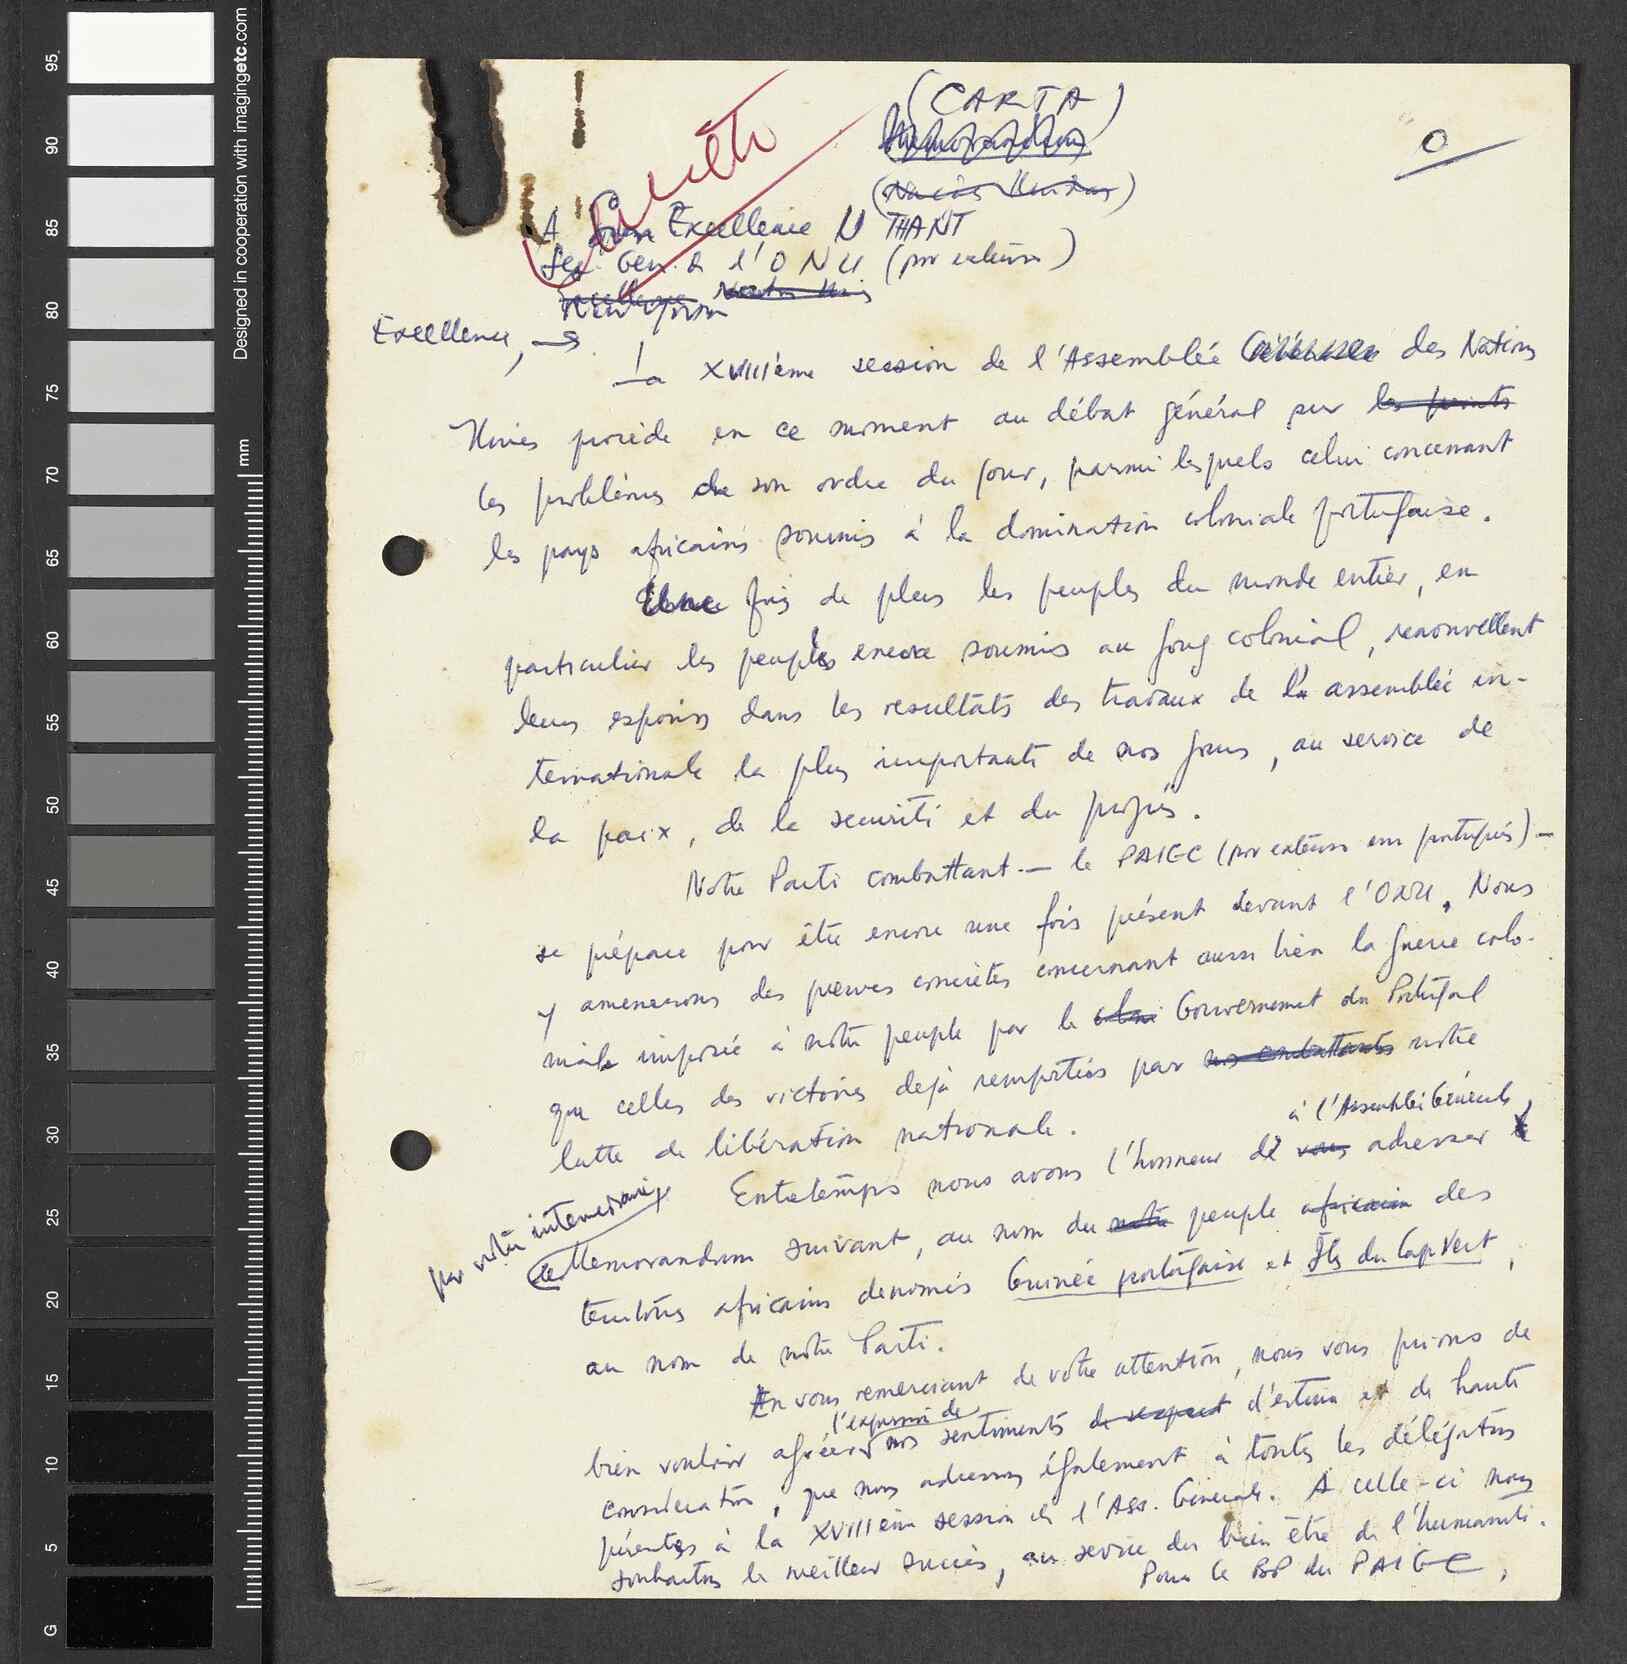 Designed in cooperation with imagingetc.com
mm
95
90
85
80
75
70
65
60
55
50
45
40
35
30
25
20
15
10
5
G
(CARTA)
Memorandum
(Nações Unidas)
0
A Son Excellence U THANT
Sec. Gen. de l'ONU (por extenso)
New York
Excellence,
La XVIIIème session de l'Assemblée Générale des Nations
Unies procède en ce moment au débat général sur les points
les problèmes de son ordre du jour, parmi lesquels celui concernant
les pays africains soumis à la domination coloniale portugaise.
Une fois de plus les peuples du monde entier, en
particulier les peuples encore soumis au joug colonial, renouvellent
leurs espoirs dans les resultats des travaux de l'assemblée in-
ternationale la plus importante de nos jours, au service de
la paix, de la securité et du progrès.
Notre Parti combattant — le PAIGC (por extenso em português) —
se prépare pour être encore une fois présent devant l'ONU. Nous
y amenerons des preuves concrètes concernant aussi bien la guerre colo-
niale imposée à notre peuple par le Gouvernement du Portugal
que celles des victoires dejà remportées par nos combattants notre
lutte de libération nationale.
à l'Assemblée Générale,
Entretemps nous avons l'honneur de vous adresser
par votre intermédiaire,
le Memorandum suivant, au nom du notre peuple africain des
territoires africains denomés Guinée portugaise et Iles du Cap Vert,
au nom de notre Parti.
En vous remerciant de votre attention, nous vous prions de
l'expression de
bien vouloir agréer nos sentiments de respect d'estime et de haute
consideration, que nous adressons également à toutes les délégations
présentes à la XVIIIème session de l'Ass. Générale. A celle-ci nous
souhaitons le meilleur succès, au service du bien être de l'humanité.
Pour le BP du PAIGC,